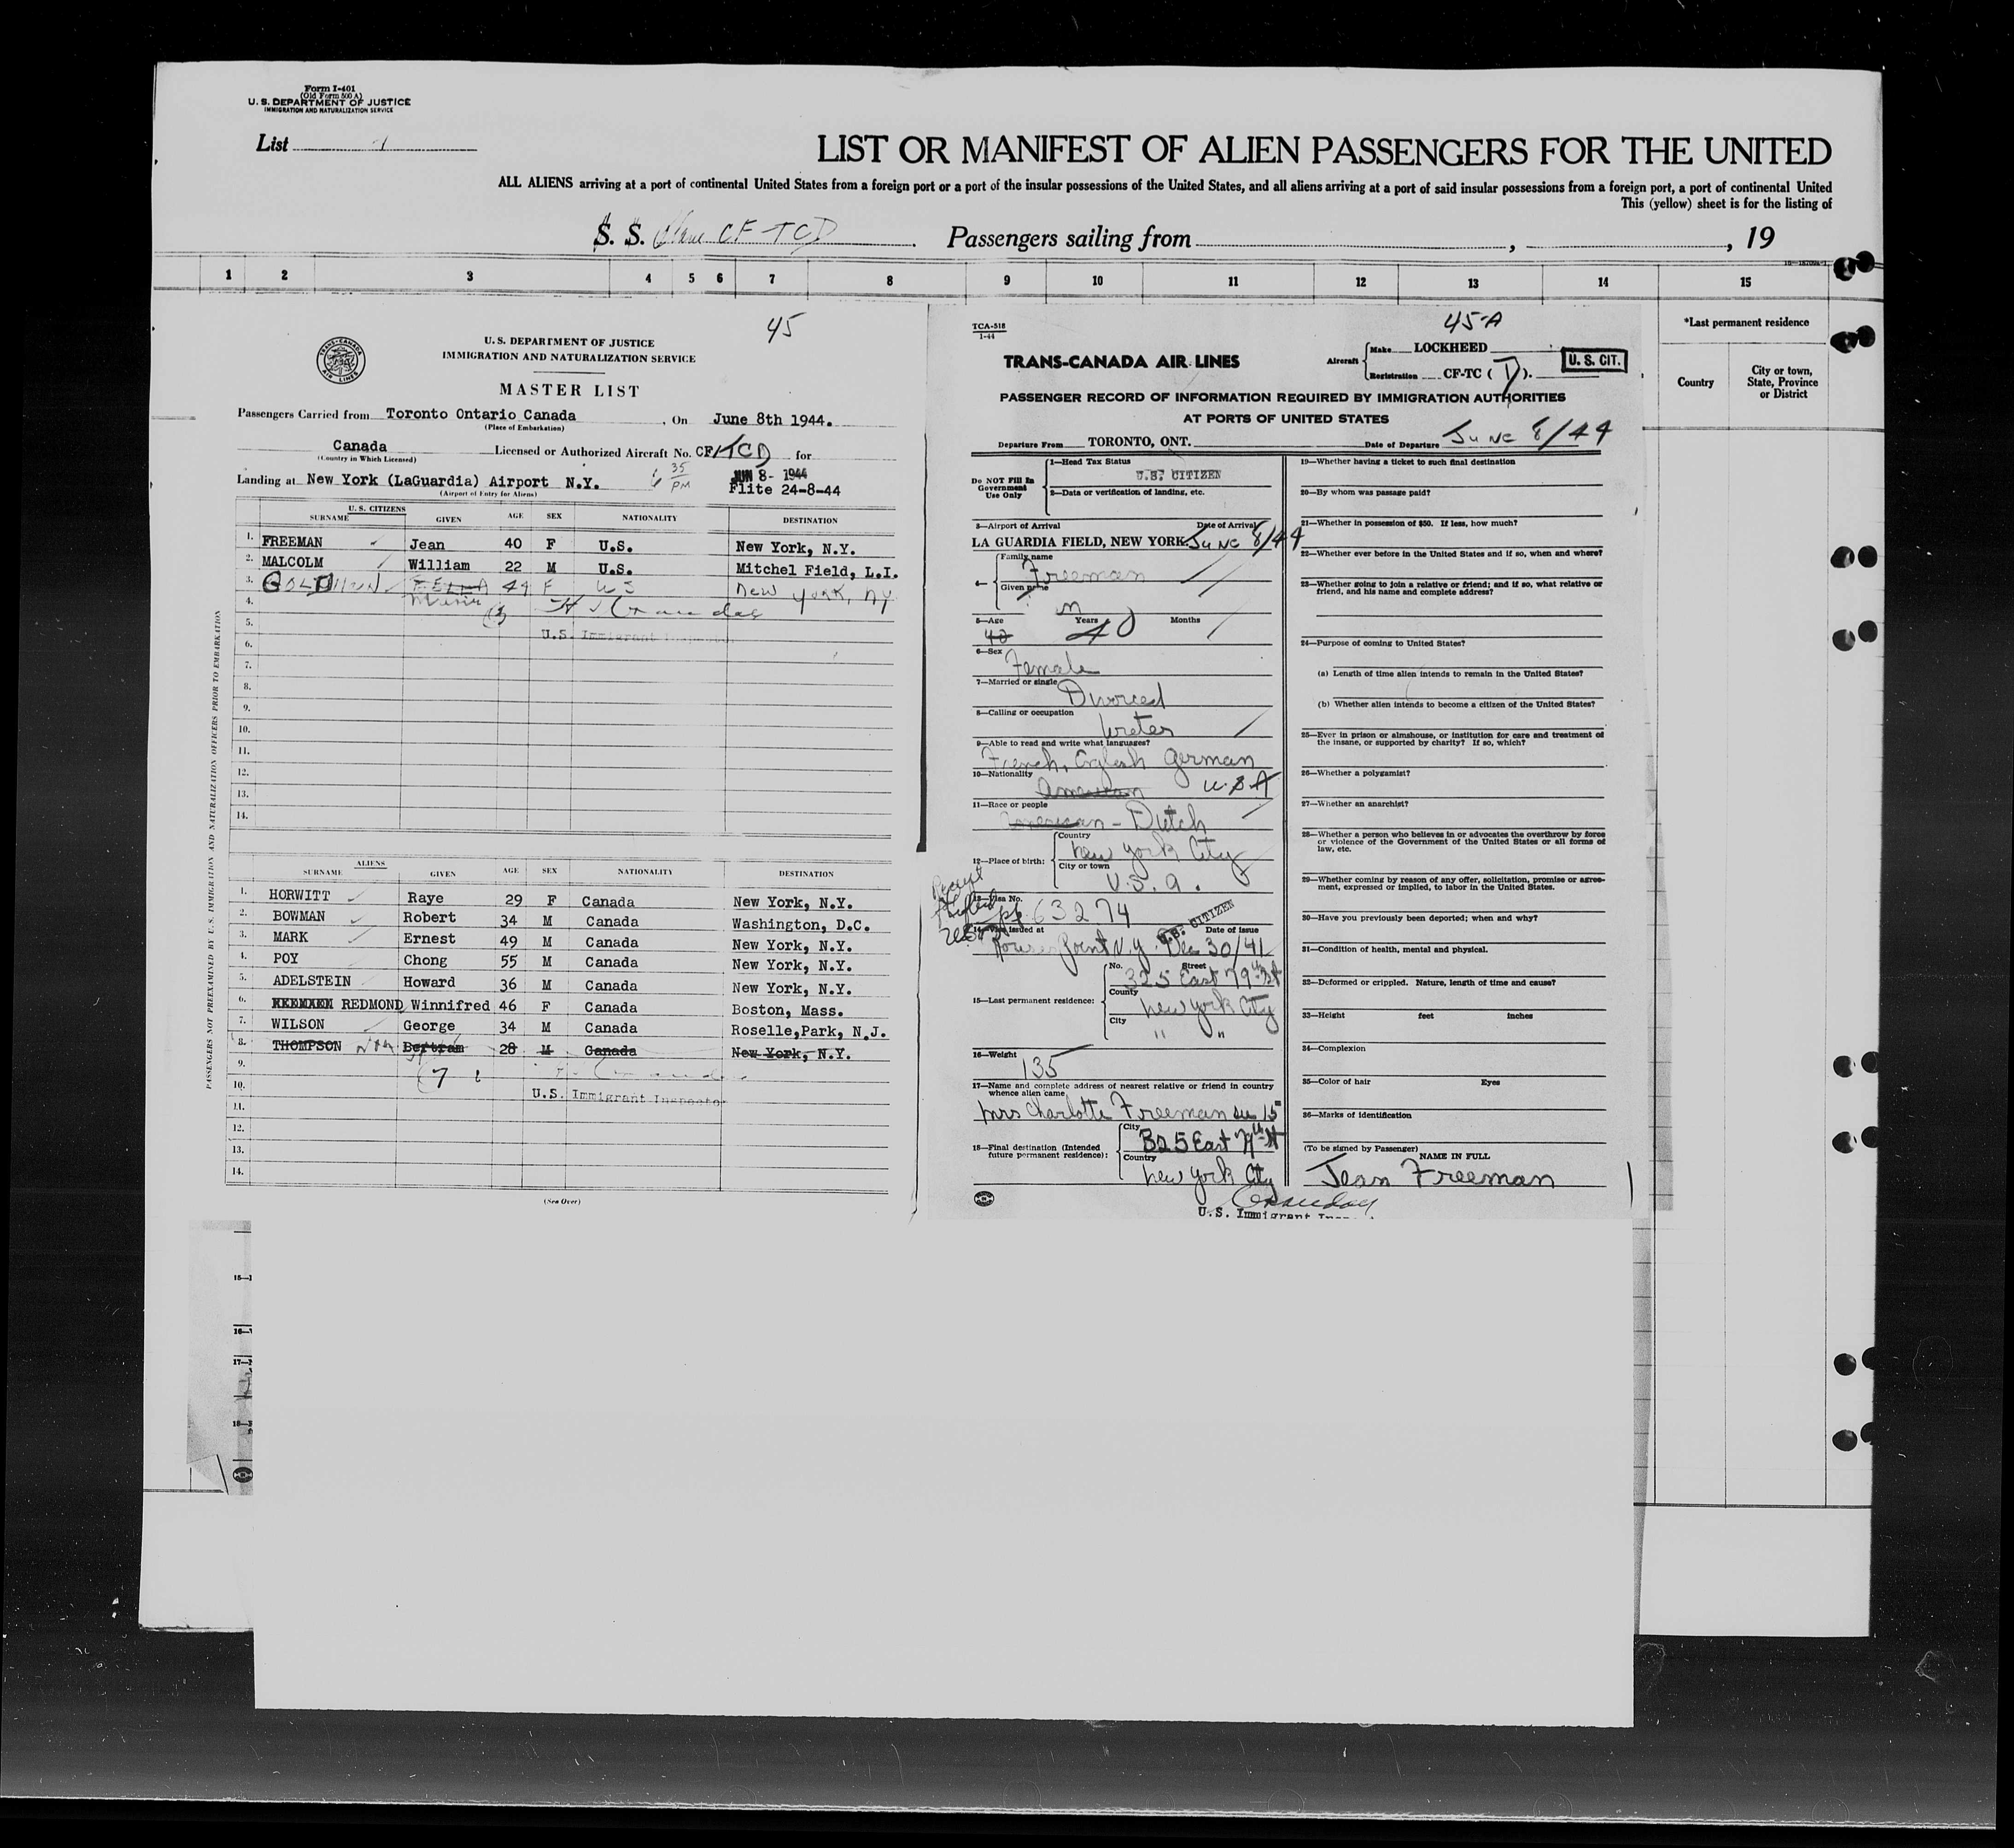 Form I-401
(Old Form 500 A)
U. S. DEPARTMENT OF JUSTICE
IMMIGRATION AND NATURALIZATION SERVICE
List 1
LIST OR MANIFEST OF ALIEN PASSENGERS FOR THE UNITED
ALL ALIENS arriving at a port of continental United States from a foreign port or a port of the insular possessions of the United States, and all aliens arriving at a port of said insular possessions from a foreign port, a port of continental United
This (yellow) sheet is for the listing of
S. S. Plane CF-TCD Passengers sailing from , , 19
1 2 3 4 5 6 7 8 9 10 11 12 13 14 15
*Last permanent residence
Country
City or town,
State, Province
or District
45
TRANS-CANADA AIR LINES
U. S. DEPARTMENT OF JUSTICE
IMMIGRATION AND NATURALIZATION SERVICE
MASTER LIST
Passengers Carried from Toronto Ontario Canada, On June 8th 1944.
(Place of Embarkation)
Canada Licensed or Authorized Aircraft No. CF-TCD for
(Country in Which Licensed)
6 35 PM
JUN 8- 1944
Landing at New York (LaGuardia) Airport N.Y. Flite 24-8-44
(Airport of Entry for Aliens)
U. S. CITIZENS
SURNAME GIVEN AGE SEX NATIONALITY DESTINATION
1. FREEMAN Jean 40 F U.S. New York, N.Y.
2. MALCOLM William 22 M U.S. Mitchel Field, L.I.
3. GOLDMAN 44 F US New York, NY
4.
(3
5.
U.S. Immigrant Inspector
6.
7.
8.
9.
10.
11.
12.
13.
14.
ALIENS
SURNAME GIVEN AGE SEX NATIONALITY DESTINATION
1. HORWITT Raye 29 F Canada New York, N.Y.
2. BOWMAN Robert 34 M Canada Washington, D.C.
3. MARK Ernest 49 M Canada New York, N.Y.
4. POY Chong 55 M Canada New York, N.Y.
5. ADELSTEIN Howard 36 M Canada New York, N.Y.
6. REDMOND Winnifred 46 F Canada Boston, Mass.
7. WILSON George 34 M Canada Roselle,Park, N.J.
8. THOMPSON Bertram 28 M Canada New York, N.Y.
9.
(7
10.
U.S. Immigrant Inspector
11.
12.
13.
14.
(See Over)
PASSENGERS NOT PREEXAMINED BY U. S. IMMIGRATION AND NATURALIZATION OFFICERS PRIOR TO EMBARKATION
TCA-518
1-44
45-A
TRANS-CANADA AIR LINES
Aircraft Make LOCKHEED
Registration CF-TC (D).
U. S. CIT.
PASSENGER RECORD OF INFORMATION REQUIRED BY IMMIGRATION AUTHORITIES
AT PORTS OF UNITED STATES
Departure From TORONTO, ONT. Date of Departure June 8/44
Do NOT Fill In
Government
Use Only
1—Head Tax Status
U.S. CITIZEN
2—Data or verification of landing, etc.
3—Airport of Arrival Date of Arrival
LA GUARDIA FIELD, NEW YORK June 8/44
4— Family name
Freeman
Given name
5—Age Years Months
40 40
6—Sex
Female
7—Married or single
Divorced
8—Calling or occupation
Writer
9—Able to read and write what languages?
French, English German
10—Nationality
American U.S.A
11—Race or people
American - Dutch
12—Place of birth: Country
New York City
City or town
U.S.A.
13—Visa No.
63274
14—Visa issued at Date of issue
U.S. CITIZEN
Rouses Point N.Y. Dec 30/41
15—Last permanent residence: No. Street
325 East 79th St
County
New York City
City
" "
16—Weight
135
17—Name and complete address of nearest relative or friend in country
whence alien came
Mrs Charlotte Freeman see 15
18—Final destination (Intended
future permanent residence): City
325 East 79th St
Country
New York City
19—Whether having a ticket to such final destination
20—By whom was passage paid?
21—Whether in possession of $50. If less, how much?
22—Whether ever before in the United States and if so, when and where?
23—Whether going to join a relative or friend; and if so, what relative or
friend, and his name and complete address?
24—Purpose of coming to United States?
(a) Length of time alien intends to remain in the United States?
(b) Whether alien intends to become a citizen of the United States?
25—Ever in prison or almshouse, or institution for care and treatment of
the insane, or supported by charity? If so, which?
26—Whether a polygamist?
27—Whether an anarchist?
28—Whether a person who believes in or advocates the overthrow by force
or violence of the Government of the United States or all forms of
law, etc.
29—Whether coming by reason of any offer, solicitation, promise or agree-
ment, expressed or implied, to labor in the United States.
30—Have you previously been deported; when and why?
31—Condition of health, mental and physical.
32—Deformed or crippled. Nature, length of time and cause?
33—Height feet inches
34—Complexion
35—Color of hair Eyes
36—Marks of identification
(To be signed by Passenger)
NAME IN FULL
Jean Freeman
U.S. Immigrant